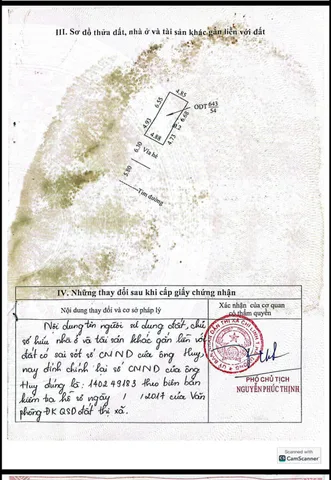 III. Sơ đồ thửa đất, nhà ở và tài sản khác gắn liền với đất
4.85
6.55
ODT 643/54
6.68
4.93
4.73
4.88
6.30
Vỉa hè
5.80
Tim đường
IV. Những thay đổi sau khi cấp giấy chứng nhận
Nội dung thay đổi và cơ sở pháp lý
Xác nhận của cơ quan có thẩm quyền
Nội dung tên người sử dụng đất, chủ
sở hữu nhà ở và tài sản khác gắn liền với
đất có sai sót số CNND của ông Huy,
nay đính chính lại số CNND của ông
Huy đúng là: 140249183 theo biên bản
kiểm tra hồ sơ ngày / /2014 của Văn
phòng ĐK QSD đất thị xã.
PHÓ CHỦ TỊCH
NGUYỄN PHÚC THỊNH
Scanned with
CamScanner